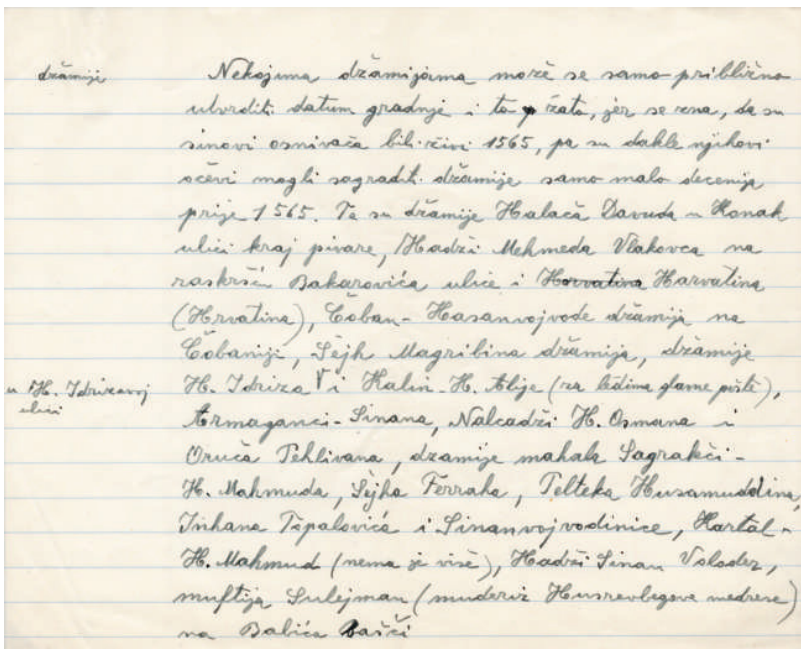 džamije
Nekojima džamijama može se samo približno
utvrditi datum gradnje i to zato, jer se zna, da su
sinovi osnivača bili živi 1565, pa su dakle njihovi
očevi mogli sagraditi džamije samo malo decenija
prije 1565. Te su džamije Halača Davuda u Konak
ulici kraj pivare, Hadži Mehmeda Vlakovca na
raskršću Bakarovića ulice i Horvatina Harvatina
(Hrvatina), Čoban-Hasanvojvode džamija na
Čobaniji, Šejh Magribina džamija, džamije
u H. Idrizovoj
ulici
H. Idriza V i Kalin-H. Alije (za leđima glavne pošte),
Armaganci-Sinana, Nalčadži H. Osmana i
Oruča Pehlivana, džamije mahala Sagrakči-
H. Mahmuda, Šejha Ferraha, Telteka Husamuddina,
Inhana Topalovića i Sinanvojvodinice, Kartal-
H. Mahmud (nema je više), Hadži Sinan Voloder,
muftija Sulejman (muderiz Husrevbegove medrese)
na Babića bašči